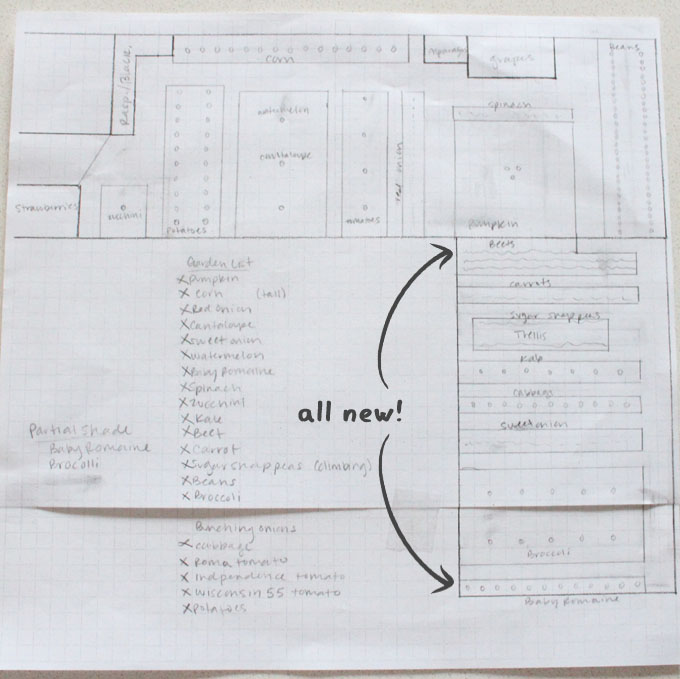 Rasp./Black.
corn
asparagus
grapes
Beans
spinach
watermelon
cantaloupe
red onion
Strawberries
zucchini
potatoes
tomatoes
pumpkin
Beets
carrots
Sugar snap peas
Trellis
Kale
cabbage
sweet onion
Broccoli
Baby Romaine
all new!
Garden List
x Pumpkin
x corn (tall)
x Red onion
x Cantaloupe
x sweet onion
x watermelon
x Baby Romaine
x Spinach
x Zucchini
x Kale
x Beet
x Carrot
x Sugar snap peas (climbing)
x Beans
x Broccoli
Bunching onions
x cabbage
x Roma tomato
x independence tomato
x Wisconsin 55 tomato
x potatoes
Partial Shade
Baby Romaine
Brocolli